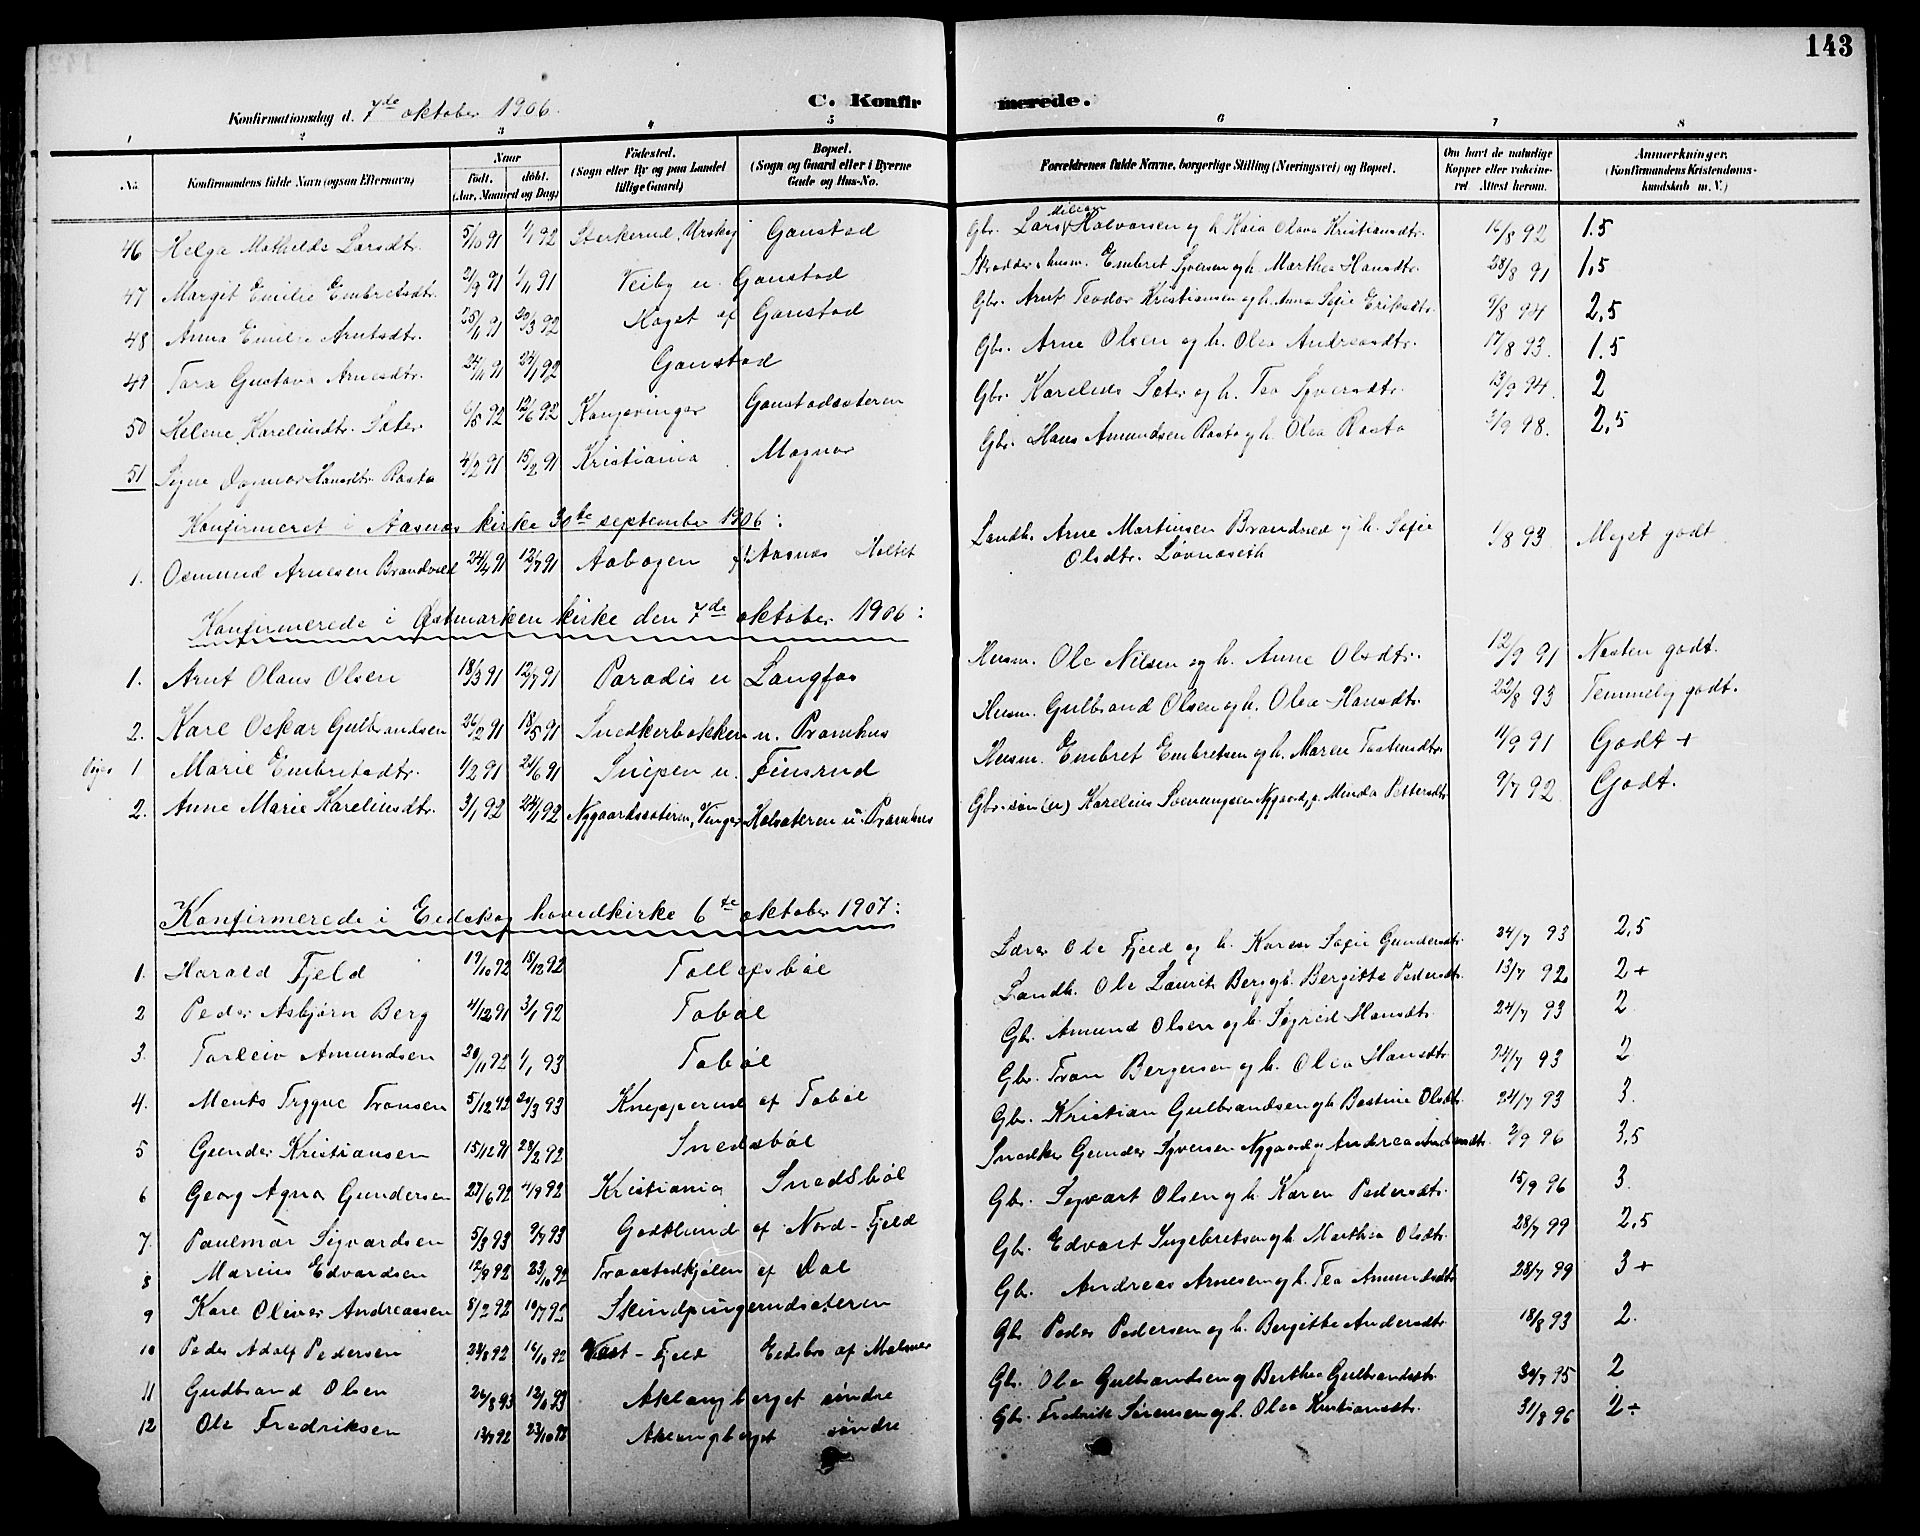 143
C. Konfirmerede.
Konfirmationsdag d. 7de oktober 1906.
1 2 3 4 5 6 7 8
No. Konfirmandens fulde Navn (ogsaa Efternavn) Naar født. døbt. (Aar, Maaned og Dag) Fødested. (Sogn eller By og paa Landet tillige Gaard) Bopæl. (Sogn og Gaard eller i Byerne Gade og Hus-No. Forældrenes fulde Navne, borgerlige Stilling (Næringsvei) og Bopæl. Om havt de naturlige Kopper eller vakcineret. Attest herom. Anmærkninger. (Konfirmandens Kristendomskundskab m. V.)
46 Helga Mathilde Larsdtr. 5/10 91 1/1 92 Sterkerud, Urskog Gaustad Gbr. Lars Milian Halvorsen og h. Kaia Olava Kristiansdtr. 16/8 92 1.5
47 Margit Emilie Embretsdtr. 2/9 91 1/11 91 Veiby u. Gaustad Skrædder & husm. Embret Syversen og h. Marthea Hansdtr. 28/8 91 1,5
48 Anna Emilie Arntsdtr. 25/11 91 20/3 92 Haget af Gaustad Gbr. Arnt Teodor Kristiansen og h. Anna Sofie Eriksdtr. 9/8 94 2,5
49 Tora Gustava Arnesdtr. 24/11 91 24/1 92 Gaustad Gbr. Arne Olsen og h. Olea Andreasdtr. 17/8 93. 1.5
50 Helene Kareliusdtr. Sæter 6/5 92 12/6 92 Kongsvinger Gaustadsæteren Gbr. Karelius Sæter og h. Tea Syversdtr. 13/9 94. 2
51 Signe Dagmar Hansdtr. Rasta 4/2 91 15/2 91 Kristiania Magnor Gbr. Hans Amundsen Rasta og h. Olea Rasta 2/9 98. 2,5
Konfirmeret i Aasnes kirke 30te september 1906:
1. Osmund Arnesen Brandvold 24/4 91 12/7 91 Aabogen Aasnes Holtet Landh. Arne Martinsen Brandvold og h. Sofie Olsdtr. Løvnæseth 1/8 93 Meget godt
Konfirmerede i Østmarken kirke den 7de oktober 1906:
1. Arnt Olaus Olsen 18/3 91 12/7 91 Paradis u Langfos Husm. Ole Nilsen og h. Anne Olsdtr. 12/9 91 Næsten godt.
2. Kare Oskar Gulbrandsen 26/2 91 18/5 91 Snedkerbakken u. Pramhus Husm. Gulbrand Olsen og h. Olea Hansdtr. 22/8 93 Temmelig godt.
Piger 1 Marie Embretsdtr. 1/2 91 21/6 91 Snipen u. Finsrud Husm. Embret Embretsen og h. Maren Tostensdtr. 11/9 91 Godt +
2. Anne Marie Kareliusdtr. 3/1 92 24/1 92 Nygaardssæteren, Vinger Kalsæteren u. Pramhus Gbr.søn (u) Karelius Nygaard, p. Minda Pettersdtr 9/7 92 Godt.
Konfirmerede i Eidskog hovedkirke 6te oktober 1907:
1. Harald Fjeld 19/10 92 18/12 92 Tollefsbøl Lærer Ole Fjeld og h. Karen Sofie Gundersdtr. 24/7 93 2,5
2 Peder Asbjørn Berg 4/12 91 3/1 92 Tobøl Landh. Ole Laurits Berg og h. Bergitte Pedersdtr. 13/7 92 2+
3. Torleiv Amundsen 20/11 92 1/1 93 Tobøl Gbr. Amund Olsen og h. Sigrid Hansdtr. 24/7 93 2
4. Ments Trygve Tronsen 5/12 92 20/3 93 Knepperud af Tobøl Gbr. Tron Bergersen og h. Olea Hansdtr 24/7 93 2
5 Gunder Kristiansen 15/12 91 28/2 92 Snedsbøl Gbr. Kristian Gulbrandsen og h. Bastine Olsdtr. 24/7 93 3.
6 Georg Agnar Gundersen 27/6 92 4/9 92 Kristiania Snedsbøl Snedker Gunder Syversen Nygaard og Andrea 2/9 96 3,5
7. Paulmar Sigvardsen 5/3 93 9/7 93 Godtlund af Nord-Fjeld Gbr. Sigvart Olsen og h. Karen Pedersdtr. 15/9 96 3.
8 Marius Edvardsen 12/9 92 23/10 92 Traastadkjølen af Dal Gbr. Edvart Ingebretsen og h. Marthea Olsdtr. 28/7 99 2,5
9 Kare Oliver Andreassen 8/2 92 10/7 92 Skindpungrudsæteren Gbr. Andreas Arnesen og h. Tea Amundsdtr 28/7 99 3+
10 Peder Adolf Pedersen 28/8 92 16/10 92 Vest-Fjeld Eidsbro af Malmer Gbr. Peder Pedersen og h. Bergitte Andersdtr. 18/8 93 2.
11 Gudbrand Olsen 26/8 93 12/11 93 Aklangberget søndre Gbr. Ole Gulbrandsen og Berthea Gulbrandsdtr. 30/7 95 2
12 Ole Fredriksen 13/9 92 23/10 92 Aklangberget søndre Gbr. Fredrik Sørensen og h. Olea Kristiansdtr. 31/8 96 2÷